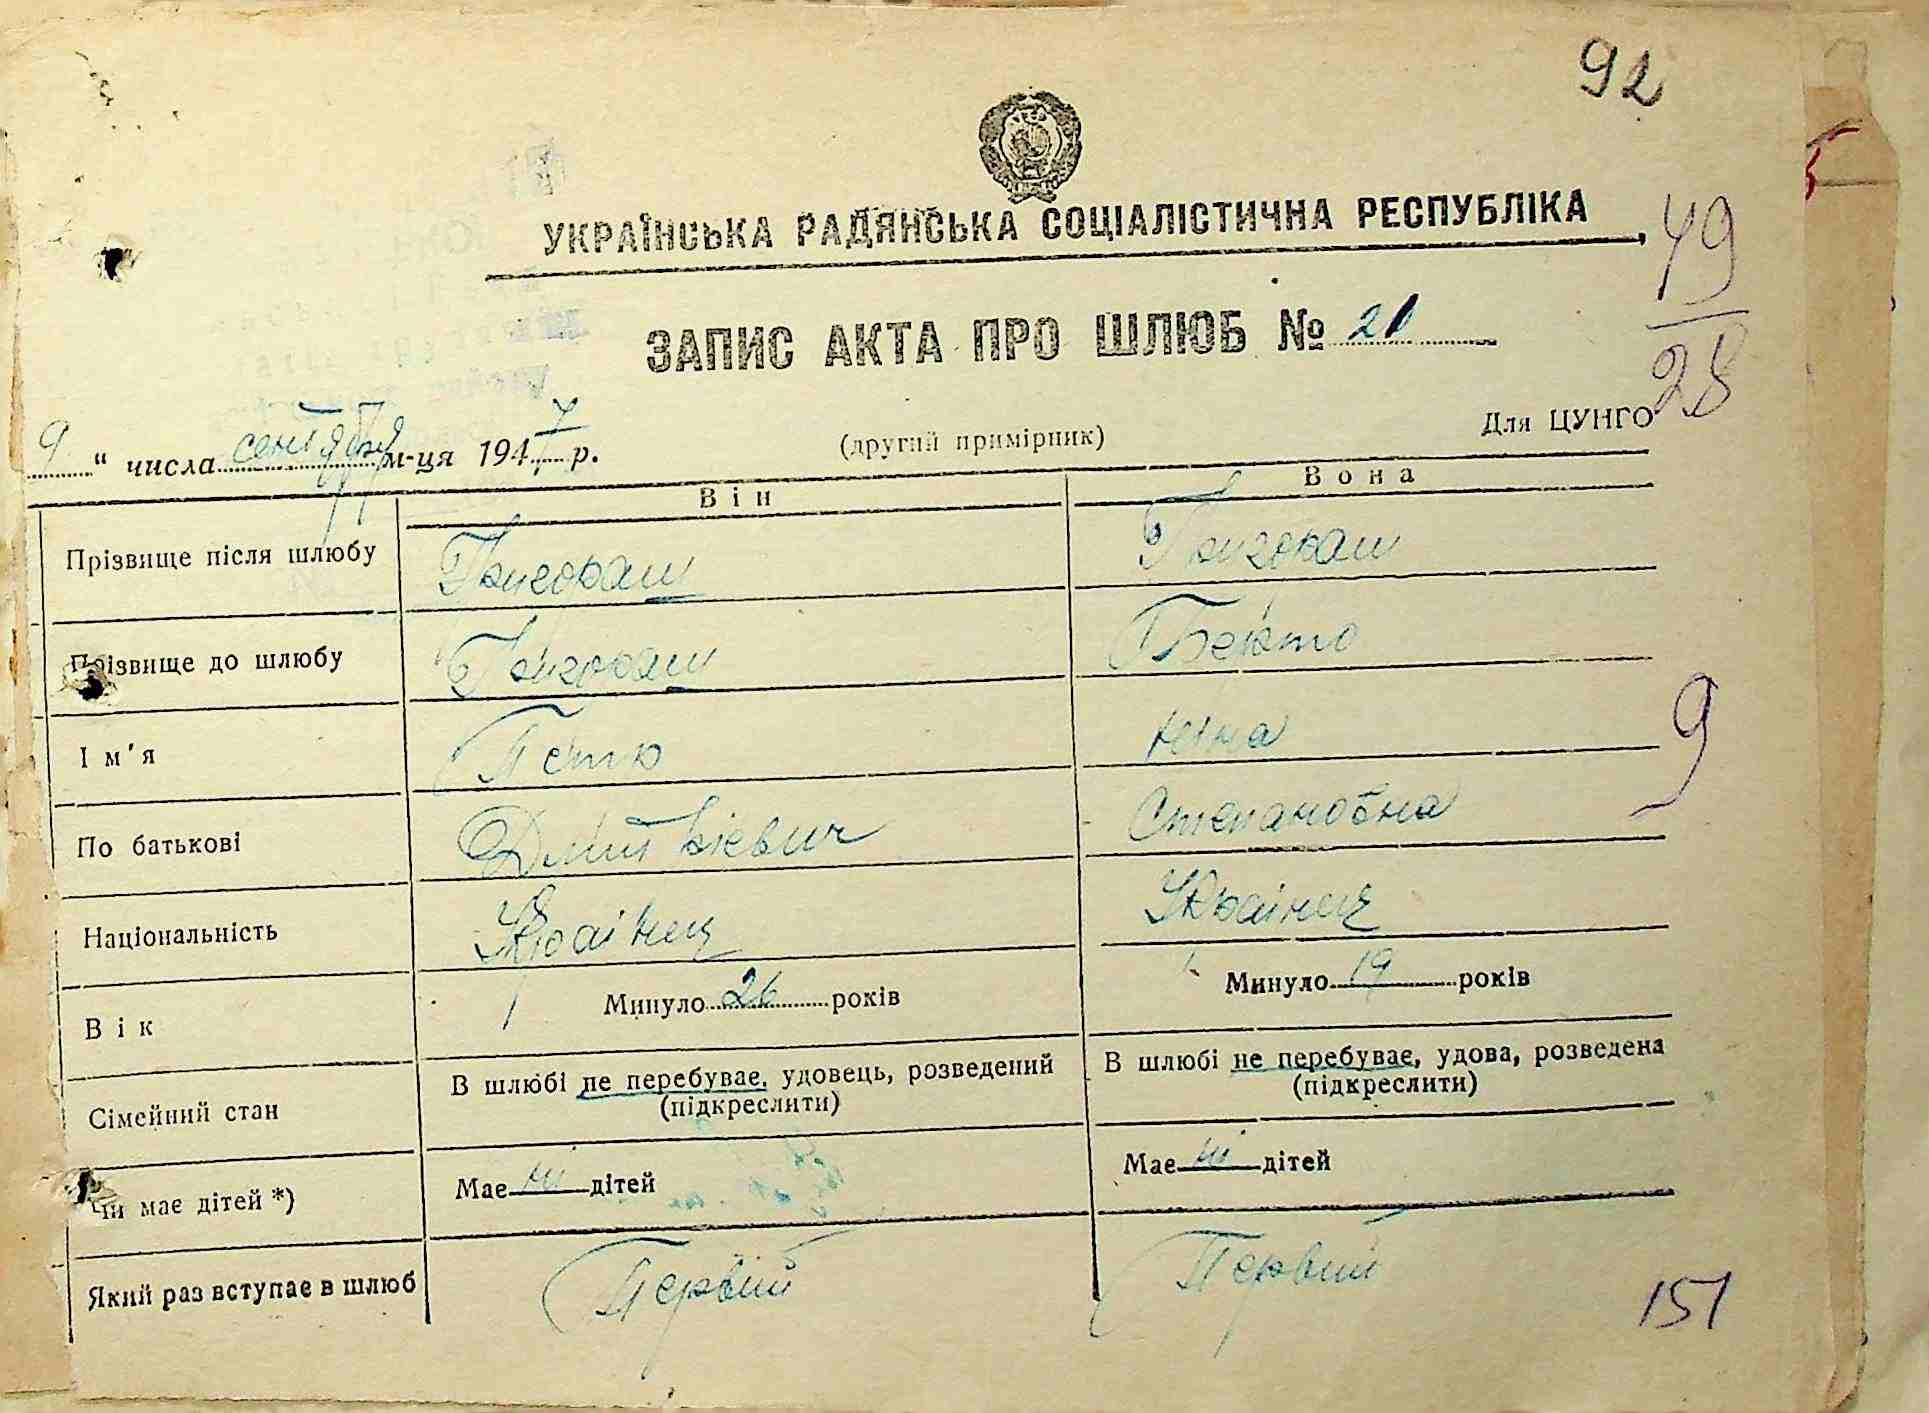 92
УКРАЇНСЬКА РАДЯНСЬКА СОЦІАЛІСТИЧНА РЕСПУБЛІКА
49
28
ЗАПИС АКТА ПРО ШЛЮБ № 21
9 " числа сентября м-ця 1947 р.
(другий примірник)
Для ЦУНГО
Він
Вона
Прізвище після шлюбу Григораш Григораш
Прізвище до шлюбу Григораш
Ім'я Петро Ніна
9
По батькові Дмитрієвич Степановна
Національність Украінец Украінец
Вік Минуло 26 років Минуло 19 років
Сімейний стан В шлюбі не перебуває, удовець, розведений В шлюбі не перебуває, удова, розведена
(підкреслити) (підкреслити)
Чи має дітей *) Має ні дітей Має ні дітей
Який раз вступає в шлюб Первий Первий
151